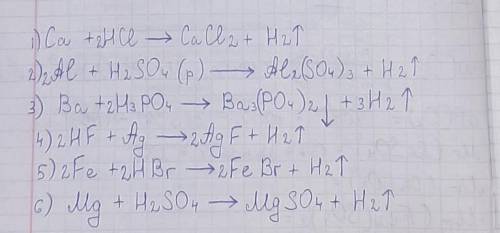 1) Ca + 2HCl → CaCl2 + H2↑
2) 2Al + H2SO4 (р) → Al2(SO4)3 + H2↑
3) Ba + 2H3PO4 → Ba3(PO4)2↓ + 3H2↑
4) 2HF + Ag → 2AgF + H2↑
5) 2Fe + 2HBr → 2FeBr + H2↑
6) Mg + H2SO4 → MgSO4 + H2↑